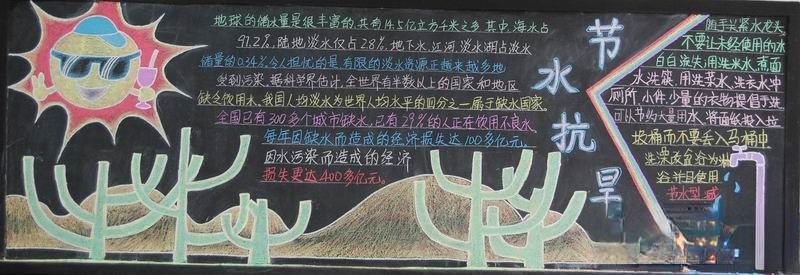 地球的储水量是很丰富的,共有14.5亿立方千米之多.其中,海水占
97.2%,陆地淡水仅占2.8%.地下水,江河,淡水湖占淡水
储量的0.34%.令人担忧的是,有限的淡水资源正越来越多地
受到污染.据科学界估计,全世界有半数以上的国家和地区
缺乏饮用水,我国人均淡水为世界人均水平的四分之一属于缺水国家.
全国已有300多个城市缺水,已有29%的人正在饮用不良水
每年因缺水而造成的经济损失达100多亿元。
因水污染而造成的经济
损失更达400多亿元。
节水抗旱
随手关紧水龙头
不要让未经使用的水
白白流失;用洗米水,煮面
水洗菜,用洗菜水,洗衣水冲
厕所,小件,少量的衣物提倡手洗
可以节约大量用水,将面纸投入垃
圾桶而不要丢入马桶中
洗澡改盆浴为淋
浴并且使用
节水型